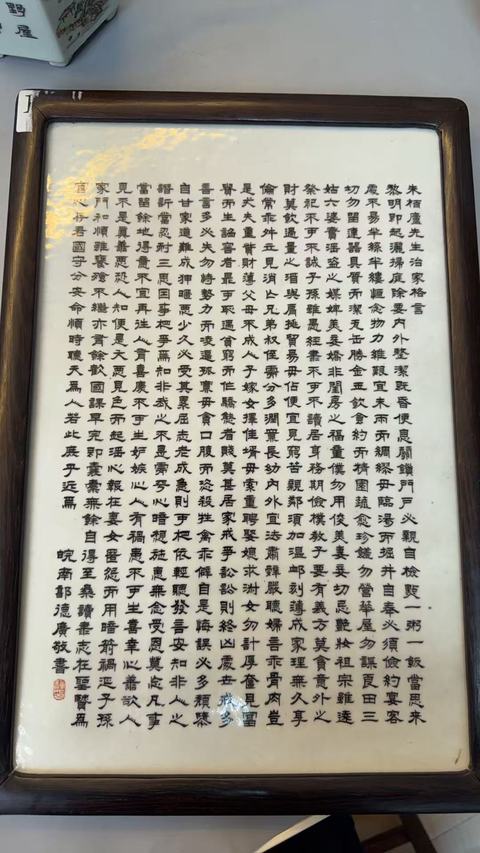 朱柏廬先生治家格言
黎明即起灑掃庭除要內外整潔既昏便息關鎖門戶必親自檢點一粥一飯當思來
處不易半絲半縷恒念物力維艱宜未雨而綢繆毋臨渴而掘井自奉必須儉約宴客
切勿留連器具質而潔瓦缶勝金玉飲食約而精園蔬愈珍饈勿營華屋勿謀良田三
姑六婆實淫盜之媒婢美妾嬌非閨房之福童僕勿用俊美妻妾切忌艷妝祖宗雖遠
祭祀不可不誠子孫雖愚經書不可不讀居身務期儉樸教子要有義方莫貪意外之
財莫飲過量之酒與肩挑貿易毋佔便宜見窮苦親鄰須加溫卹刻薄成家理無久享
倫常乖舛立見消亡兄弟叔侄需分多潤寡長幼內外宜法肅辭嚴聽婦言乖骨肉豈
是丈夫重貲財薄父母不成人子嫁女擇佳婿毋索重聘娶媳求淑女勿計厚奩見富
貴而生諂容者最可恥遇貧窮而作驕態者賤莫甚居家戒爭訟訟則終凶處世戒多
言言多必失勿恃勢力而凌逼孤寡毋貪口腹而恣殺牲禽乖僻自是悔誤必多頹隳
自甘家道難成狎暱惡少久必受其累屈志老成急則可相依輕聽發言安知非人之
譖訴當忍耐三思因事相爭焉知非我之不是需平心暗想施惠無念受恩莫忘凡事
當留餘地得意不宜再往人有喜慶不可生妒嫉心人有禍患不可生喜幸心善欲人
見不是真善惡恐人知便是大惡見色而起淫心報在妻女匿怨而用暗箭禍延子孫
家門和順雖饔飧不繼亦有餘歡國課早完即囊橐無餘自得至樂讀書志在聖賢為
官心存君國守分安命順時聽天為人若此庶乎近焉
皖南 德廣敬書
野屋